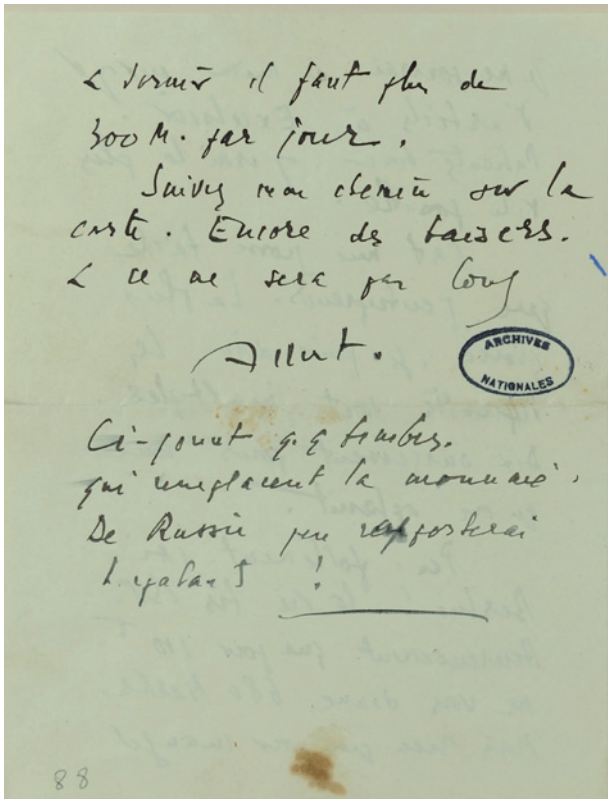 il faut plus de
300 M. par jour.
Suivez mon chemin sur la
carte. Encore des baisers.
& ce ne sera pas long
Albert.
ARCHIVES
NATIONALES
Ci-joint qq timbres.
qui remplacent la monnaie.
De Russie j'en rapporterai
!
88